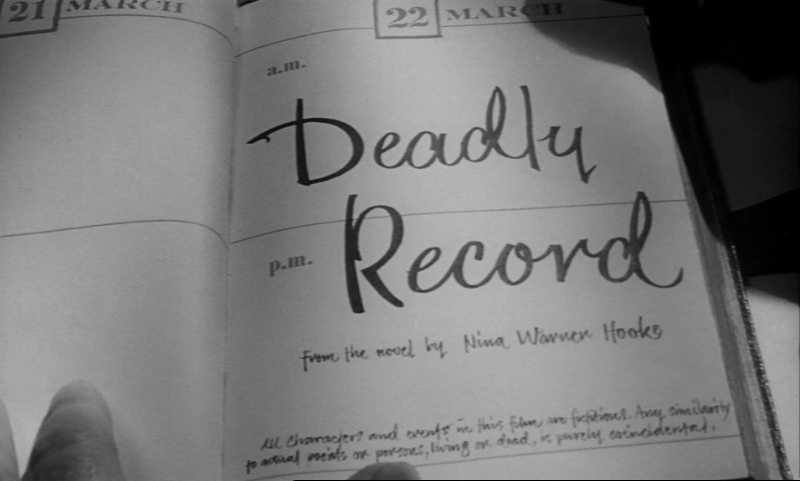 21 MARCH
22 MARCH
a.m.
Deadly
p.m.
Record
from the novel by Nina Warner Hooks
All characters and events in this film are fictitious. Any similarity
to actual events or persons, living or dead, is purely coincidental.